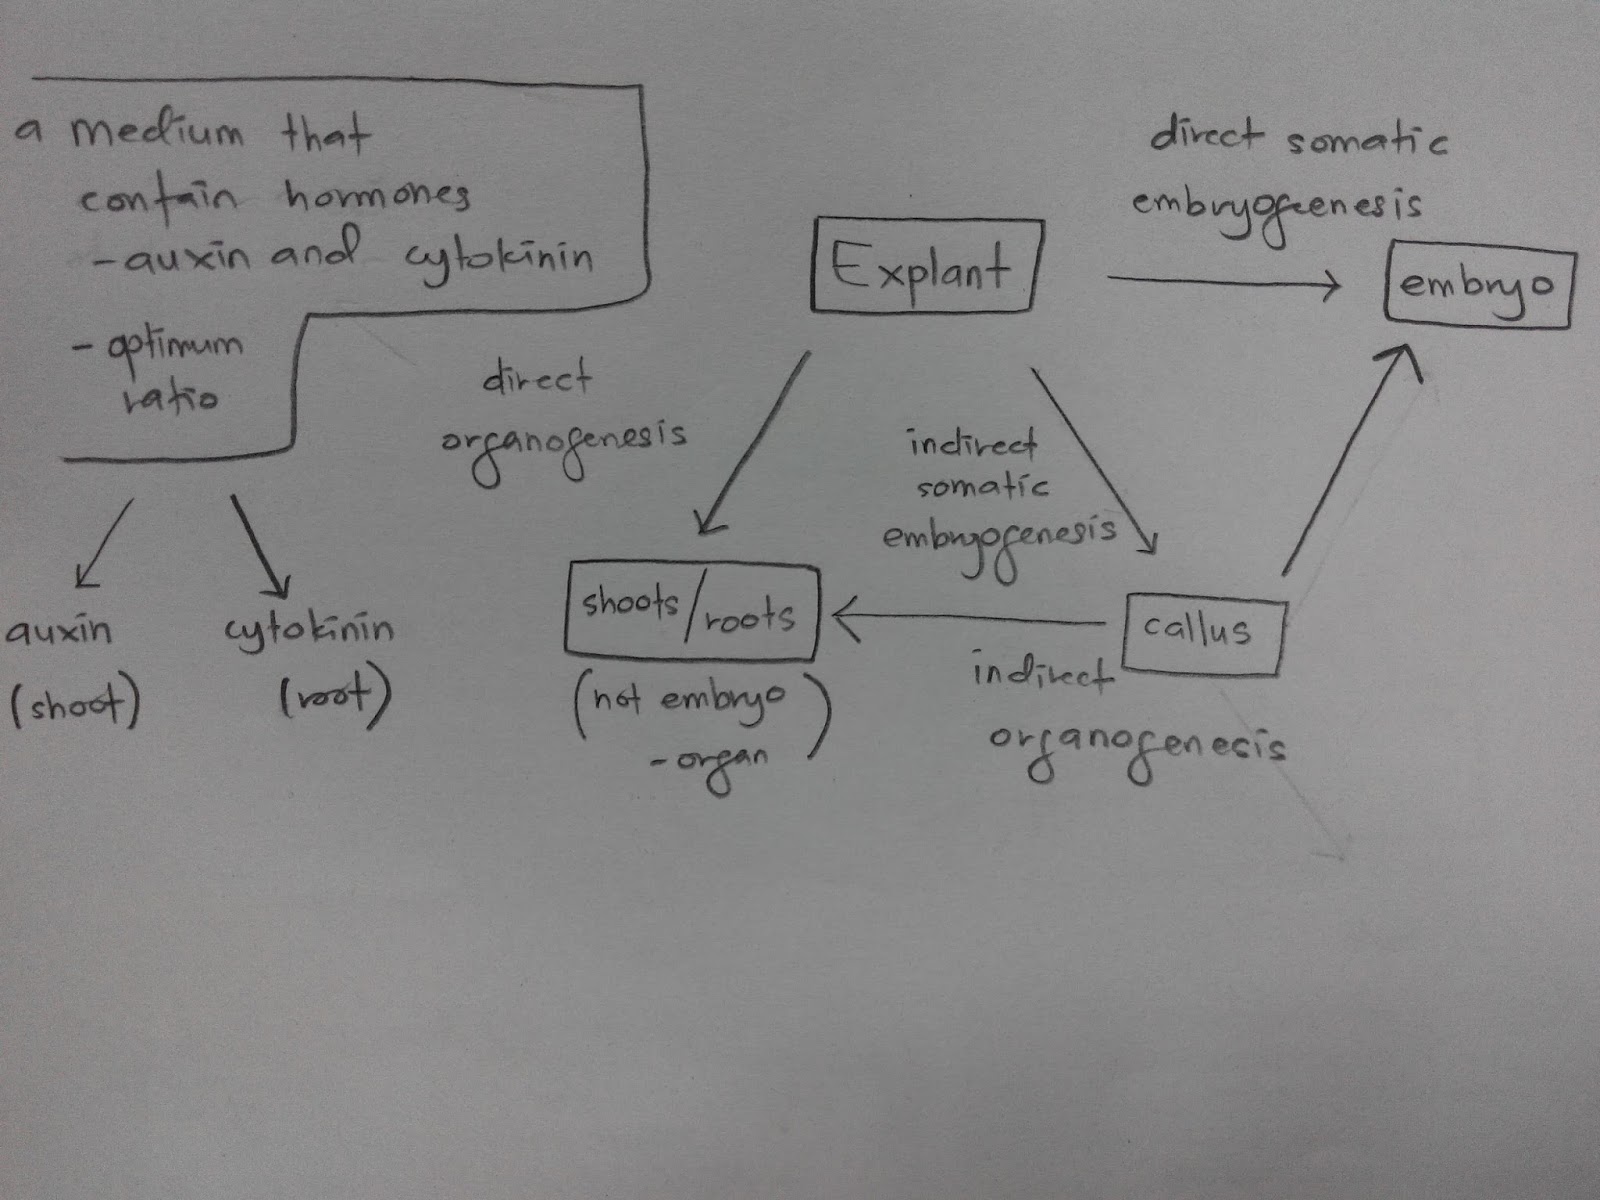 a medium that
contain hormones
- auxin and cytokinin
- optimum
ratio
auxin
(shoot)
cytokinin
(root)
direct
organogenesis
Explant
direct somatic
embryogeenesis
embryo
indirect
somatic
embryogenesis
shoots/roots
(not embryo
- organ)
callus
indirect
organogenesis